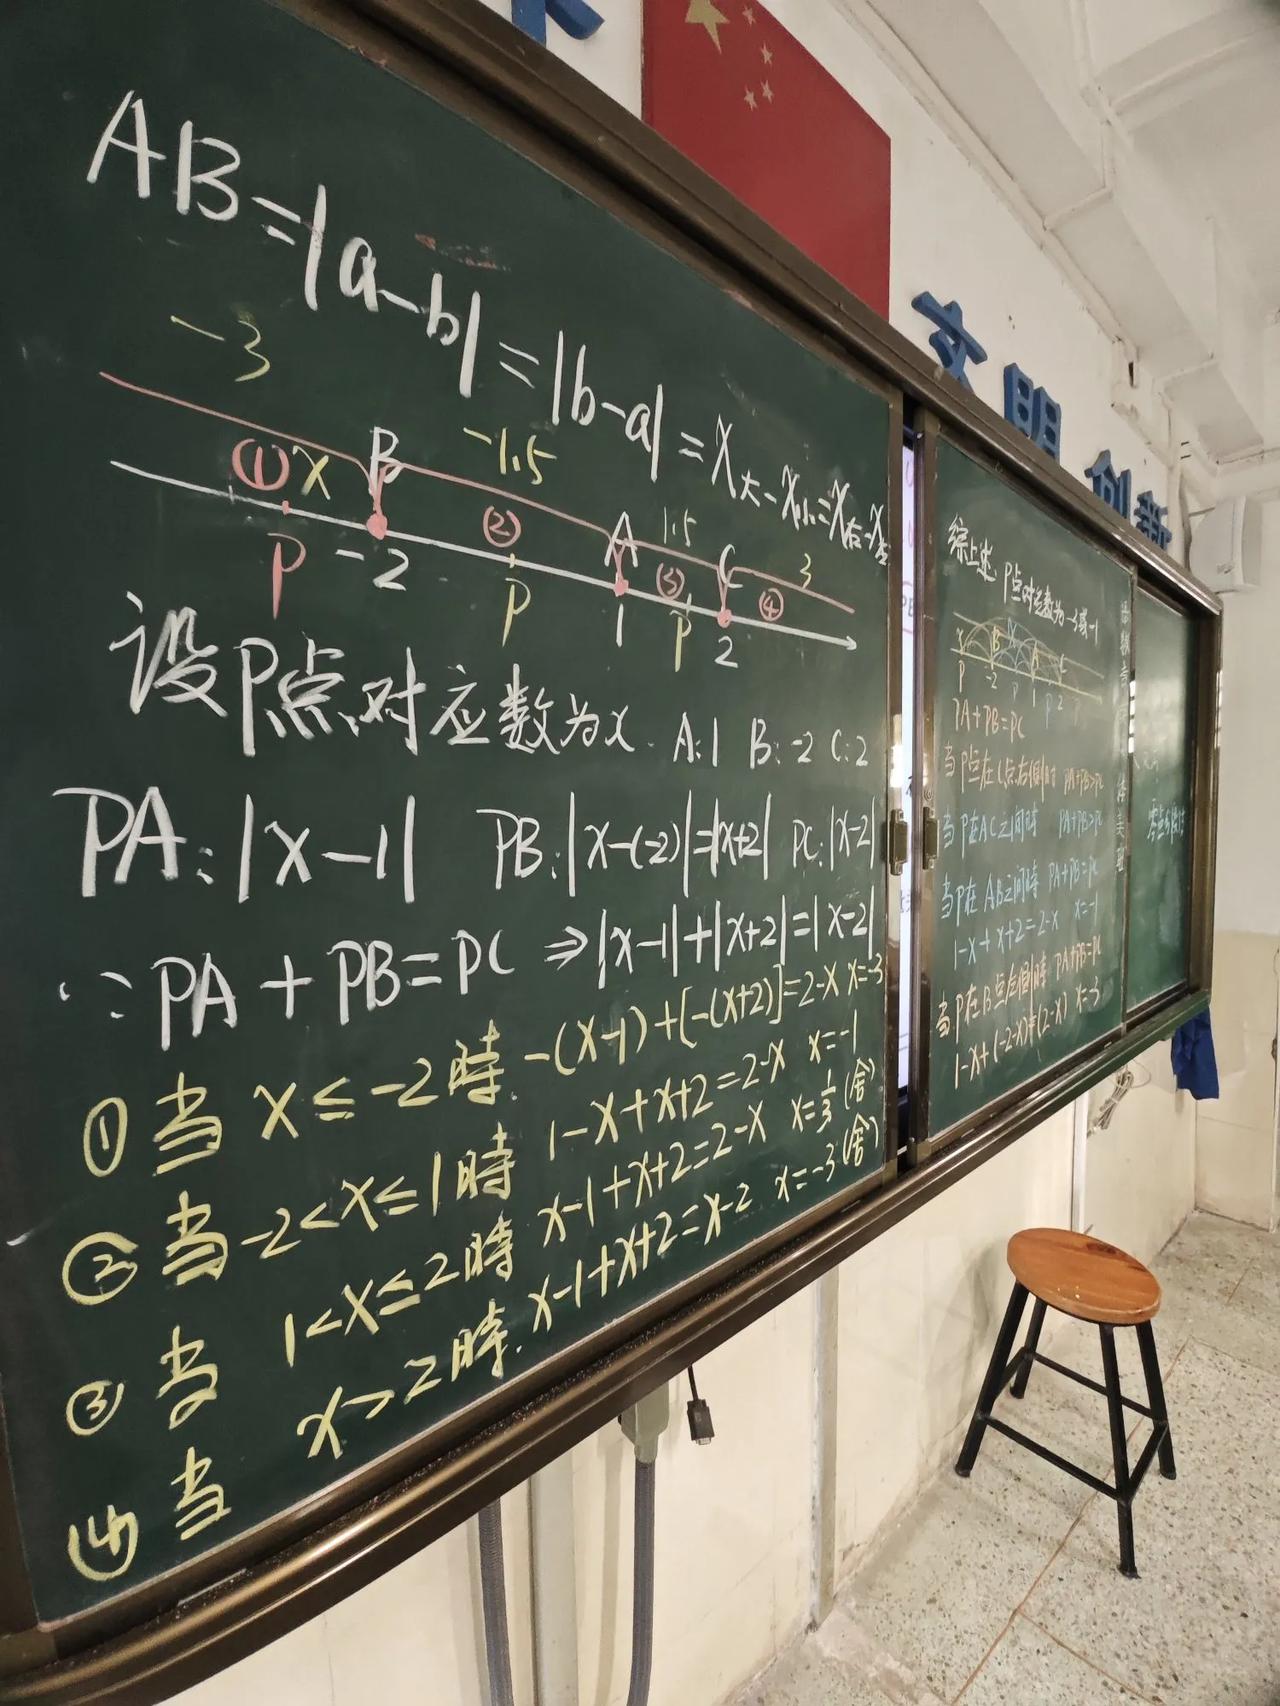 AB=|a-b|=|b-a|=x大-x小=x右-x左
-3
① x B -1.5 ② A 1.5 ③ C 3 ④
P -2 P 1 P 2
设P点对应数为x. A:1 B:-2 C:2
PA:|x-1| PB:|x-(-2)|=|x+2| PC:|x-2|
∵PA+PB=PC ⇒|x-1|+|x+2|=|x-2|
①当x≤-2時.-(x-1)+[-(x+2)]=2-x x=-3
②当-2<x≤1時 1-x+x+2=2-x x=-1
③当 1<x≤2時 x-1+x+2=2-x x=1/3(舍)
④当 x>2時.x-1+x+2=x-2 x=-3(舍)
文明 创新
综上述:P点对应数为-3或-1
B C
P -2 P 1 P 2
PA+PB=PC
当P点在C点右侧时 PA+PB>PC
当P在AC之间时 PA+PB>PC
当P在AB之间時 PA+PB=PC
1-x+x+2=2-x x=-1
当P在B点左侧時 PA+PB=PC
1-x+(-2-x)=(2-x) x=-3